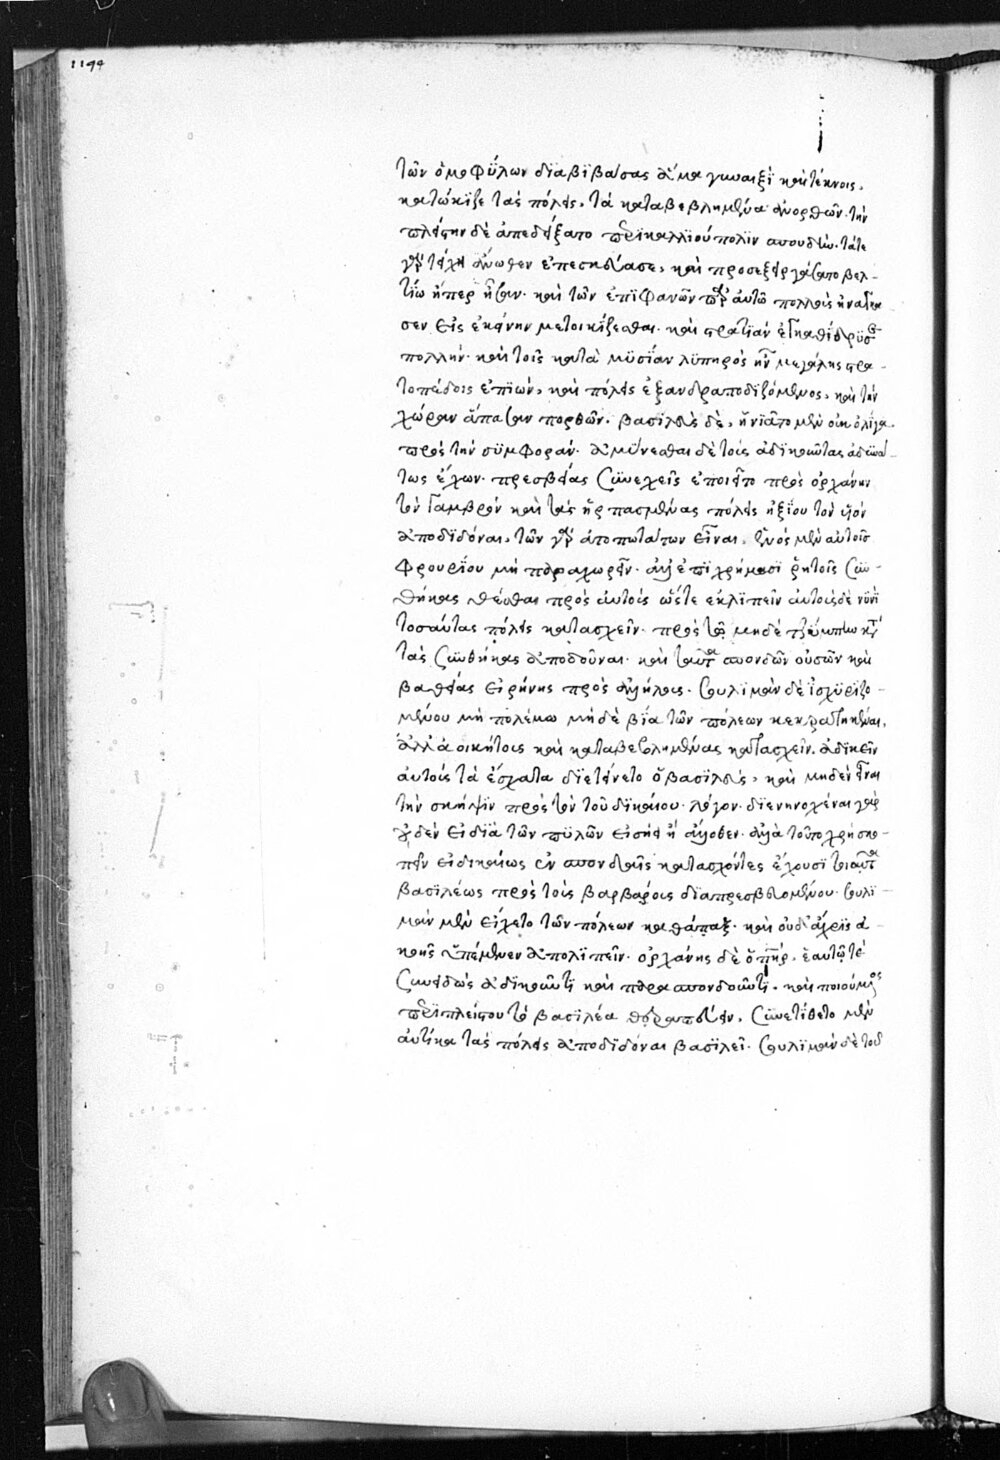 1194
τῶν ὁμοφύλων διαβιβάσας ἅμα γυναιξὶ καὶ τέκνοις,
κατώκιζε τὰς πόλεις, τὰ καταβεβλημένα ἀνορθῶν. τὴν
πλείστην δὲ ἀπεδείξατο περὶ καλλιούπολιν σπουδὴν. τά τε
γὰρ τείχη ἄνωθεν ἐπεσκεύασε, καὶ προσεξειργάσατο βελ-
τίω ἤπερ ἦσαν. καὶ τῶν ἐπιφανῶν παρ' αὐτῶ πολλοὺς ἠνάγκα
σεν εἰς ἐκείνην μετοικίζεσθαι. καὶ στρατιὰν ἐγκαθίδρυσε
πολλήν. καὶ τοῖς κατὰ μυσίαν λυπηρὸς ἦν μεγάλης στρα-
τοπέδοις ἐπιών, καὶ πόλεις ἐξανδραποδιζόμενος, καὶ τὴν
χώραν ἅπασαν πορθῶν. βασιλεὺς δὲ, ἠνιᾶτο μὲν οὐκ ὀλίγα
πρὸς τὴν συμφοράν. ἀμύνεσθαι δὲ τοὺς ἀδικοῦντας ἀδυνά-
τως ἔχων. πρεσβείας συνεχεῖς ἐποιεῖτο πρὸς ὀρχάνην
τὸν γαμβρόν καὶ τὰς ἡρπασμένας πόλεις ἠξίου τὸν υἱὸν
ἀποδιδόναι, τῶν γὰρ ἀτοπωτάτων εἶναι, ἑνὸς μὲν αὐτοῖς
φρουρίου μὴ παραχωρεῖν. ἀλλ' ἐπὶ χρήμασι ῥητοῖς συν-
θήκας θέσθαι πρὸς αὐτοὺς ὥστε ἐκλιπεῖν αὐτοὺς δὲ νυνὶ
τοσαύτας πόλεις κατασχεῖν. πρὸς τῶ μηδὲ τζύμπην κατὰ
τὰς συνθήκας ἀποδοῦναι. καὶ ταῦτα σπονδῶν οὐσῶν καὶ
βαθείας εἰρήνης πρὸς ἀλλήλους. σουλιμὰν δὲ ἰσχυριζο-
μένου μὴ πολέμω μὴ δὲ βία τῶν πόλεων κεκρατηκέναι,
ἀλλὰ ἀοικήτους καὶ καταβεβλημένας κατασχεῖν. ἀδικεῖν
αὐτοὺς τὰ ἔσχατα διετείνετο ὁ βασιλεὺς, καὶ μηδὲν εἶναι
τὴν σκῆψιν πρὸς τὸν τοῦ δικαίου λόγον. διενηνοχέναι γὰρ
οὐδὲν εἰ διὰ τῶν πυλῶν εἰσήει ἢ ἄλλοθεν. ἀλλὰ τοῦτο χρὴ σκο-
πεῖν εἰ δικαίως ἐν σπονδαῖς κατασχόντες ἔχουσι τοιαῦτα
βασιλέως πρὸς τοὺς βαρβάρους διαπρεσβευομένου. σουλι-
μὰν μὲν εἴχετο τῶν πόλεων καθάπαξ. καὶ οὐδ' ἄχρις ἀ-
κοῆς ὑπέμενεν ἀπολιπεῖν. ὀρχάνης δὲ ὁ πατὴρ, ἑαυτῶ τε
συνειδὼς ἀδικοῦντι καὶ παρασπονδοῦντι. καὶ ποιούμενος
περὶ πλείστου τὸ βασιλέα θεραπεύειν, συνετίθετο μὲν
αὐτίκα τὰς πόλεις ἀποδιδόναι βασιλεῖ. σουλιμὰν δὲ τοῦ